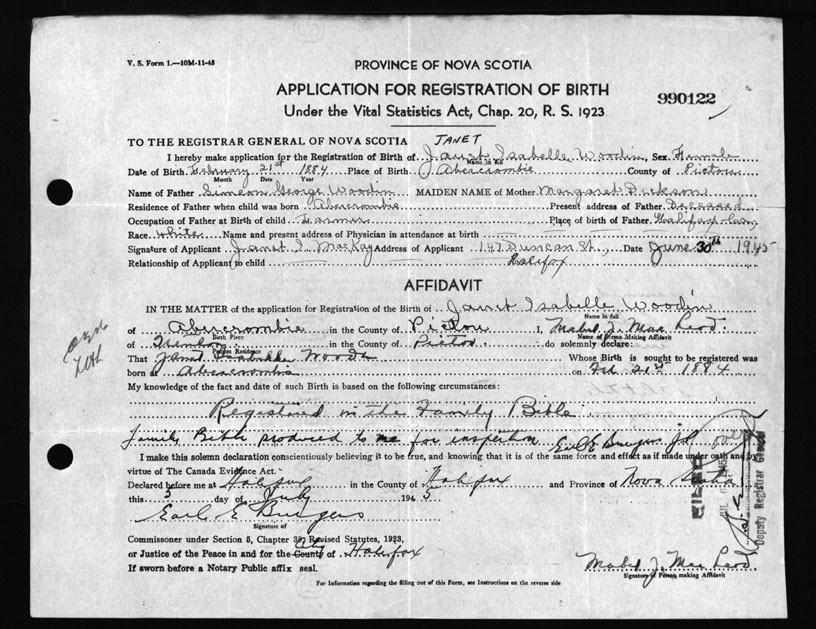 V. S. Form 1.—10M-11-43
PROVINCE OF NOVA SCOTIA
APPLICATION FOR REGISTRATION OF BIRTH
990122
Under the Vital Statistics Act, Chap. 20, R. S. 1923
TO THE REGISTRAR GENERAL OF NOVA SCOTIA JANET
I hereby make application for the Registration of Birth of Janet Isabelle Woodin, Sex Female
Name in full
Date of Birth February 21st 1884 Place of Birth Abercrombie County of Pictou
Month Date Year
Name of Father Simeon George Woodin MAIDEN NAME of Mother Margaret Dickson
Residence of Father when child was born Abercrombie Present address of Father Deceased
Occupation of Father at Birth of child Farmer Place of birth of Father Halifax
Race white Name and present address of Physician in attendance at birth
Signature of Applicant Janet I. MacKay Address of Applicant 147 Duncan St., Date June 30th 1945
Relationship of Applicant to child Halifax
AFFIDAVIT
IN THE MATTER of the application for Registration of the Birth of Janet Isabelle Woodin
Name in full
of Abercrombie in the County of Pictou I, Mabel J. MacLeod.
Birth Place Name of Person Making Affidavit
of in the County of Pictou do solemnly declare:
Present Residence
That Janet Isabelle Woodin Whose Birth is sought to be registered was
born at Abercrombie on Feb 21st 1884
My knowledge of the fact and date of such Birth is based on the following circumstances:
Registered in the Family Bible
family Bible produced to me for inspection Earl E Burgess
I make this solemn declaration conscientiously believing it to be true, and knowing that it is of the same force and effect as if made under oath and by
virtue of The Canada Evidence Act.
Declared before me at Halifax in the County of Halifax and Province of Nova Scotia
this 5 day of July 1945
Earl E Burgess
Signature of
Commissioner under Section 5, Chapter 39, Revised Statutes, 1923,
City
or Justice of the Peace in and for the County of Halifax
If sworn before a Notary Public affix seal.
Mabel J. MacLeod
Signature of Person making Affidavit
For Information regarding the filling out of this Form, see Instructions on the reverse side
FILED
Deputy Registrar General